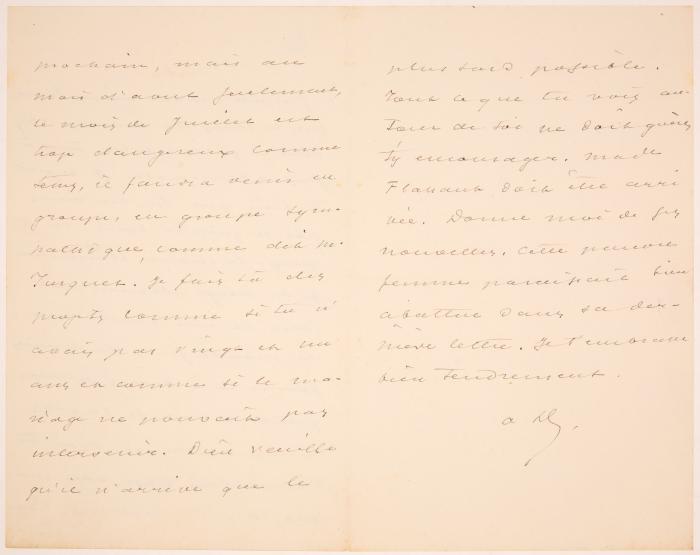 prochain, mais au
mois d'aout seulement,
le mois de Juillet est
trop dangereux comme
tems, il faudra venir en
groupe, en groupe sym-
pathique, comme dit M.
Turquet. Je fais là des
projets comme si tu n'
avais pas vingt et un
ans et comme si le ma-
riage ne pouvait pas
intervenir. Dieu veuille
qu'il n'arrive que le
plus tard possible.
Tout ce que tu vois au-
tour de toi ne doit guère
t'y encourager. Made
Flahaut doit être arri
vée. Donne moi de ses
nouvelles. Cette pauvre
femme paraissait bien
abattue dans sa der-
nière lettre. Je t'embrasse
bien tendrement.